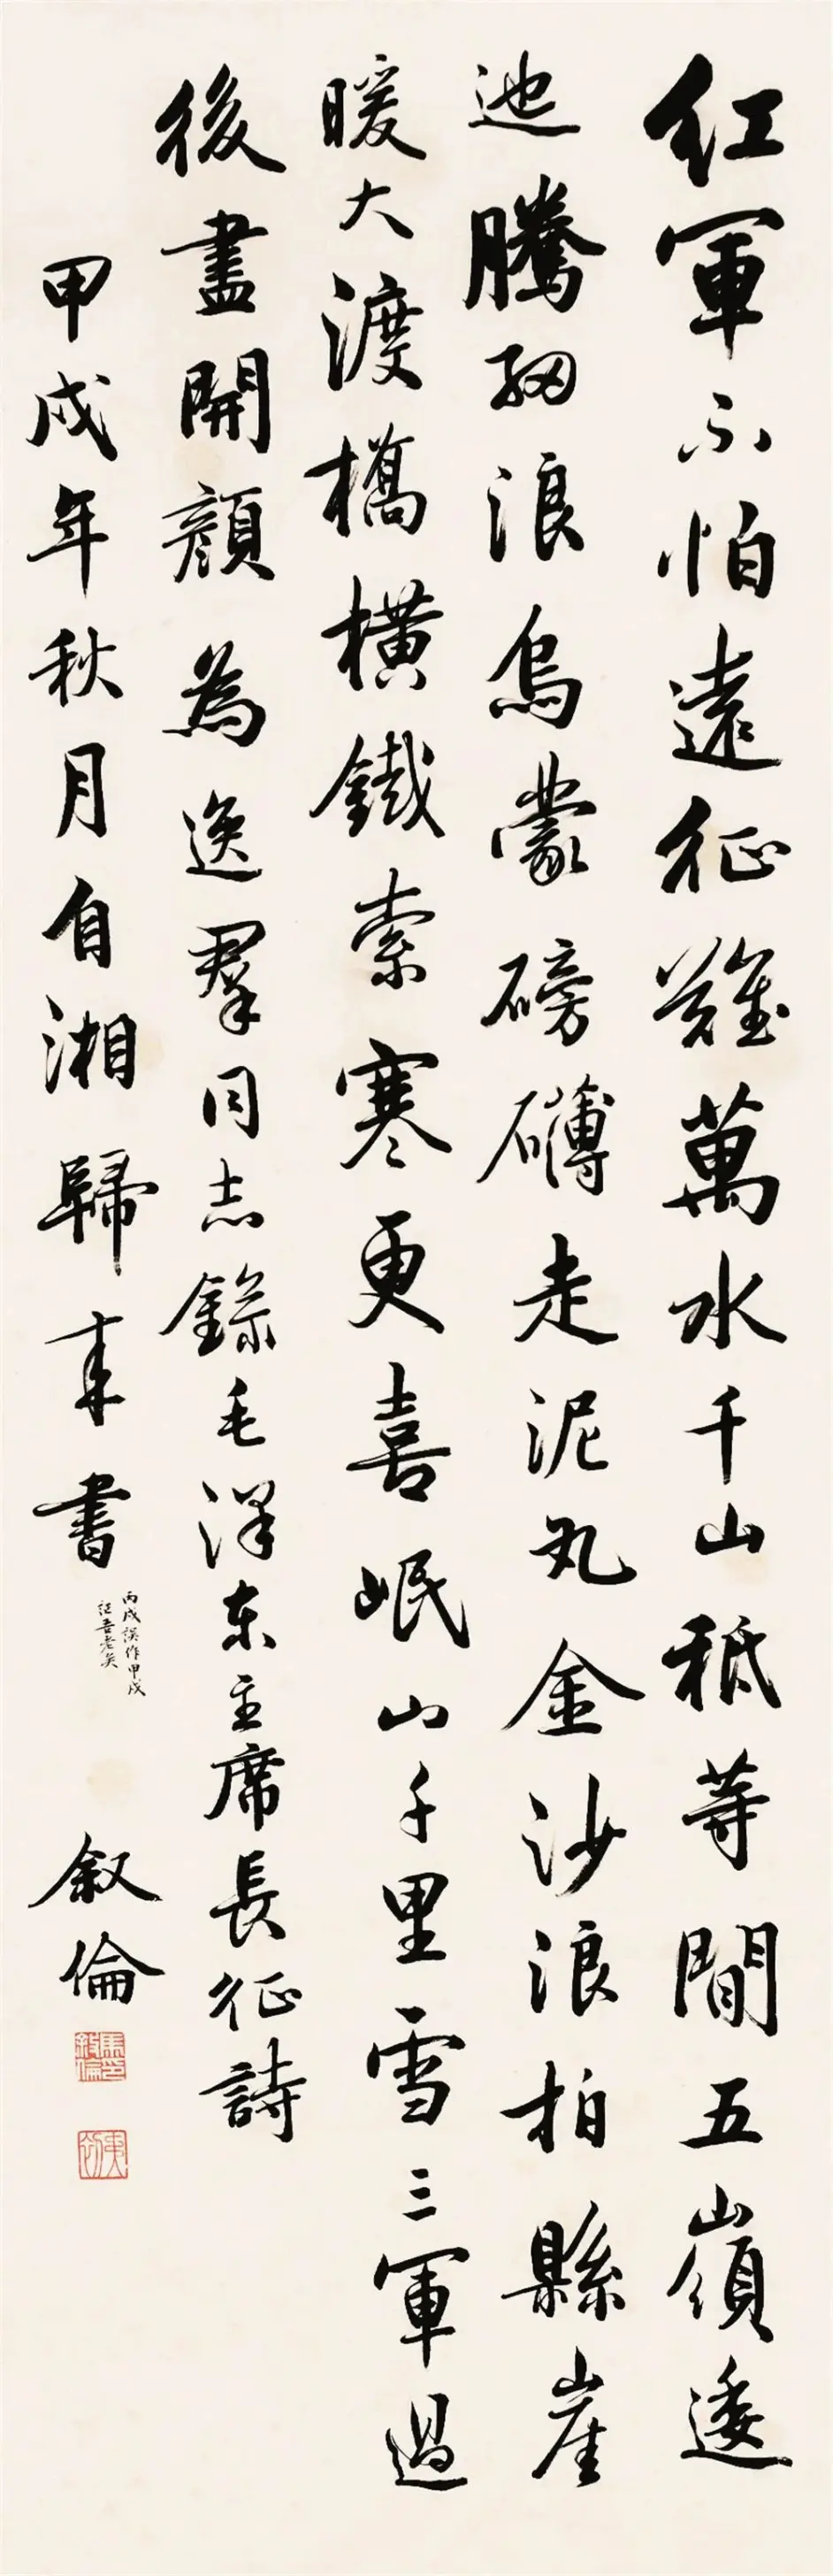 紅軍不怕遠征難萬水千山秪等閒五嶺逶
迤騰細浪烏蒙磅礴走泥丸金沙浪拍縣崖
暖大渡橋橫鐵索寒更喜岷山千里雪三軍過
後盡開顏為逸羣同志錄毛澤東主席長征詩
甲戌年秋月自湘歸来書
丙戌誤作甲戌
吾老矣
叙倫
馬叙倫印